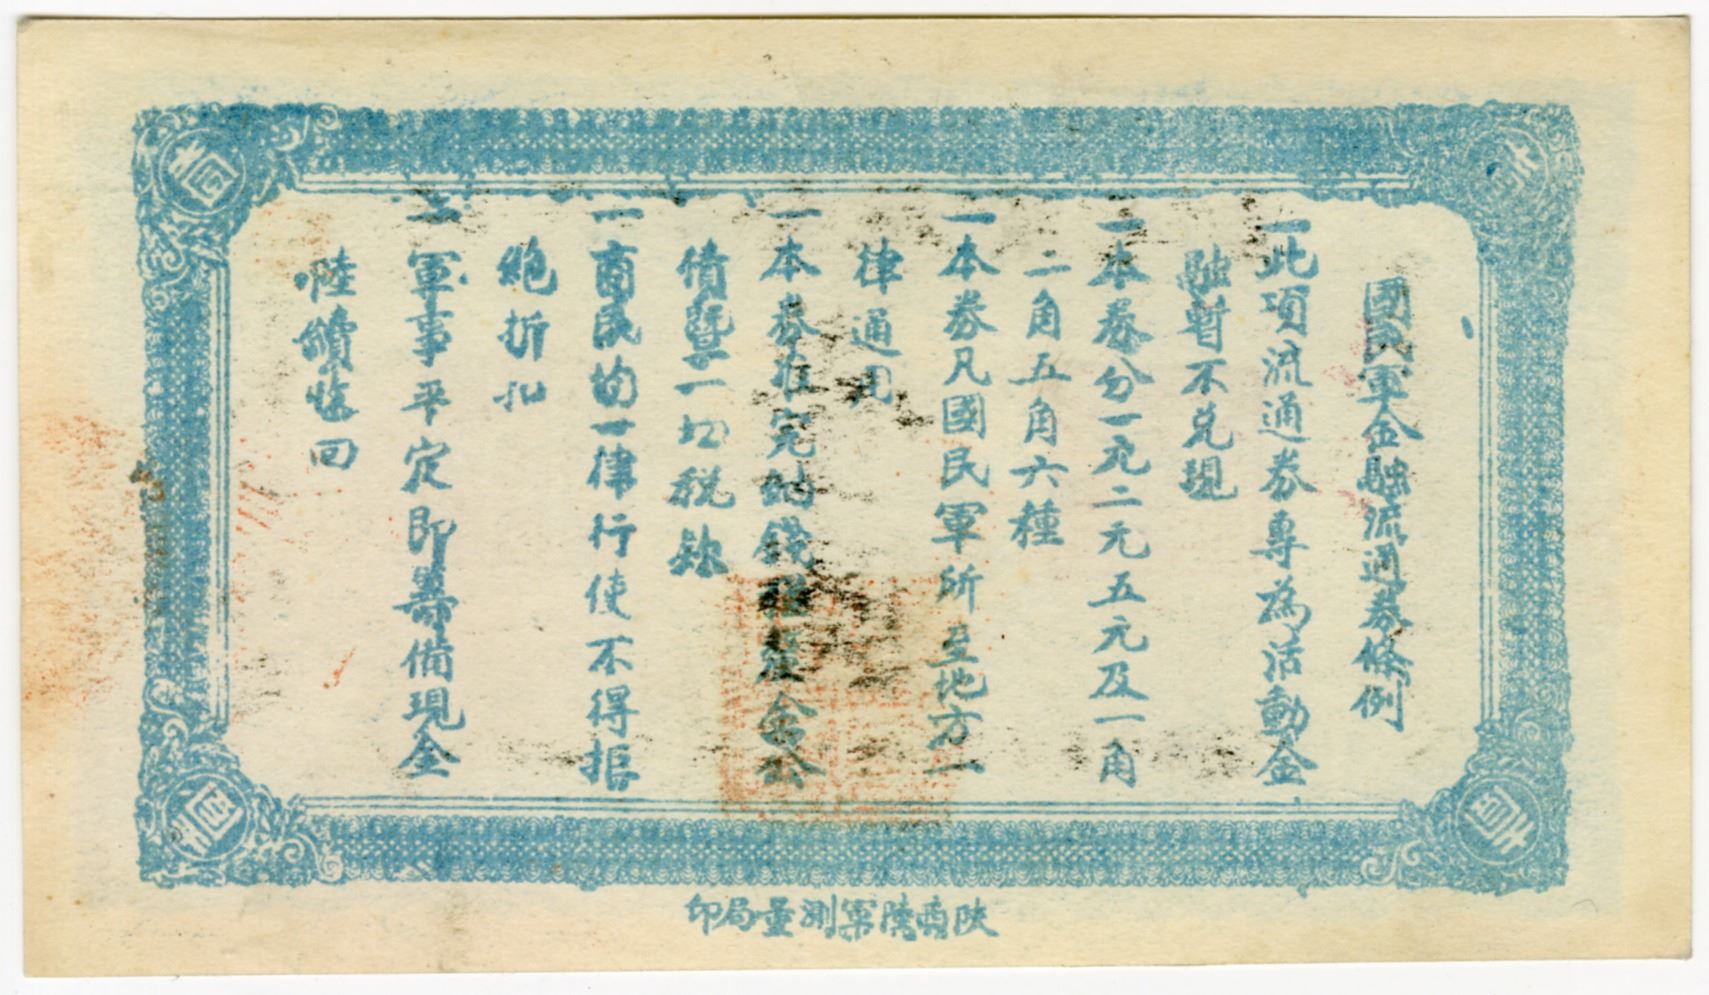 國民軍金融流通券條例
一此項流通券專為活動金
融暫不兌現
一本券分一元二元五元及一角
二角五角六種
一本券凡國民軍所至地方一
律通用
一本券准完納錢糧厘金公
債暨一切稅款
一商民均一律行使不得拒
絕折扣
一軍事平定即籌備現金
陸續收回
陝西陸軍測量局印